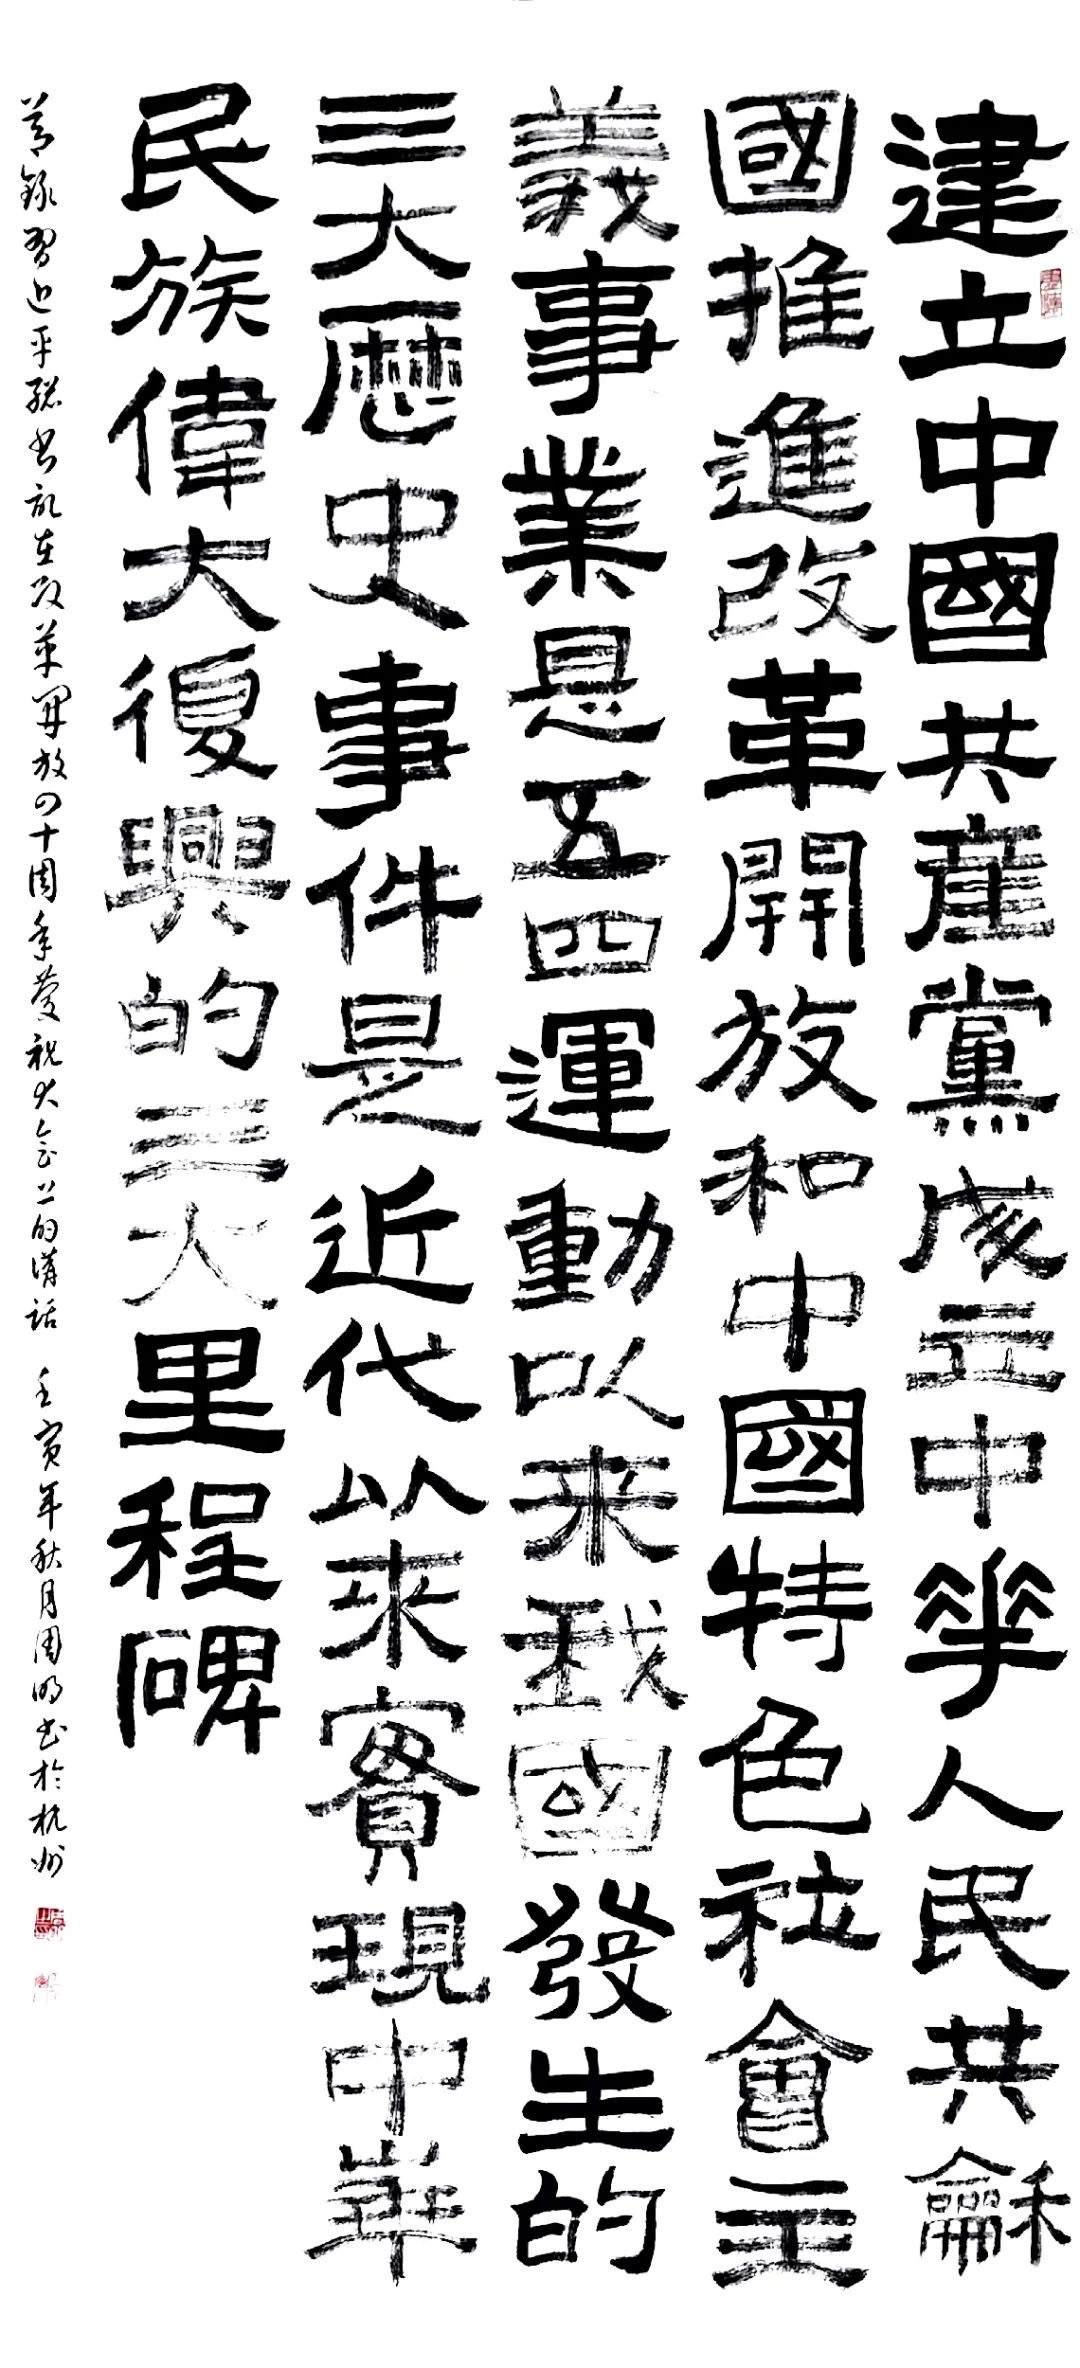 建立中國共產黨成立中華人民共龢
國推進改革開放和中國特色社會主
義事業是五四運動以来我國發生的
三大歷史事件是近代以來實現中華
民族偉大復興的三大里程碑
节錄習近平總書記在改革開放四十周年慶祝大會上的講話 壬寅年秋月周明书於杭州